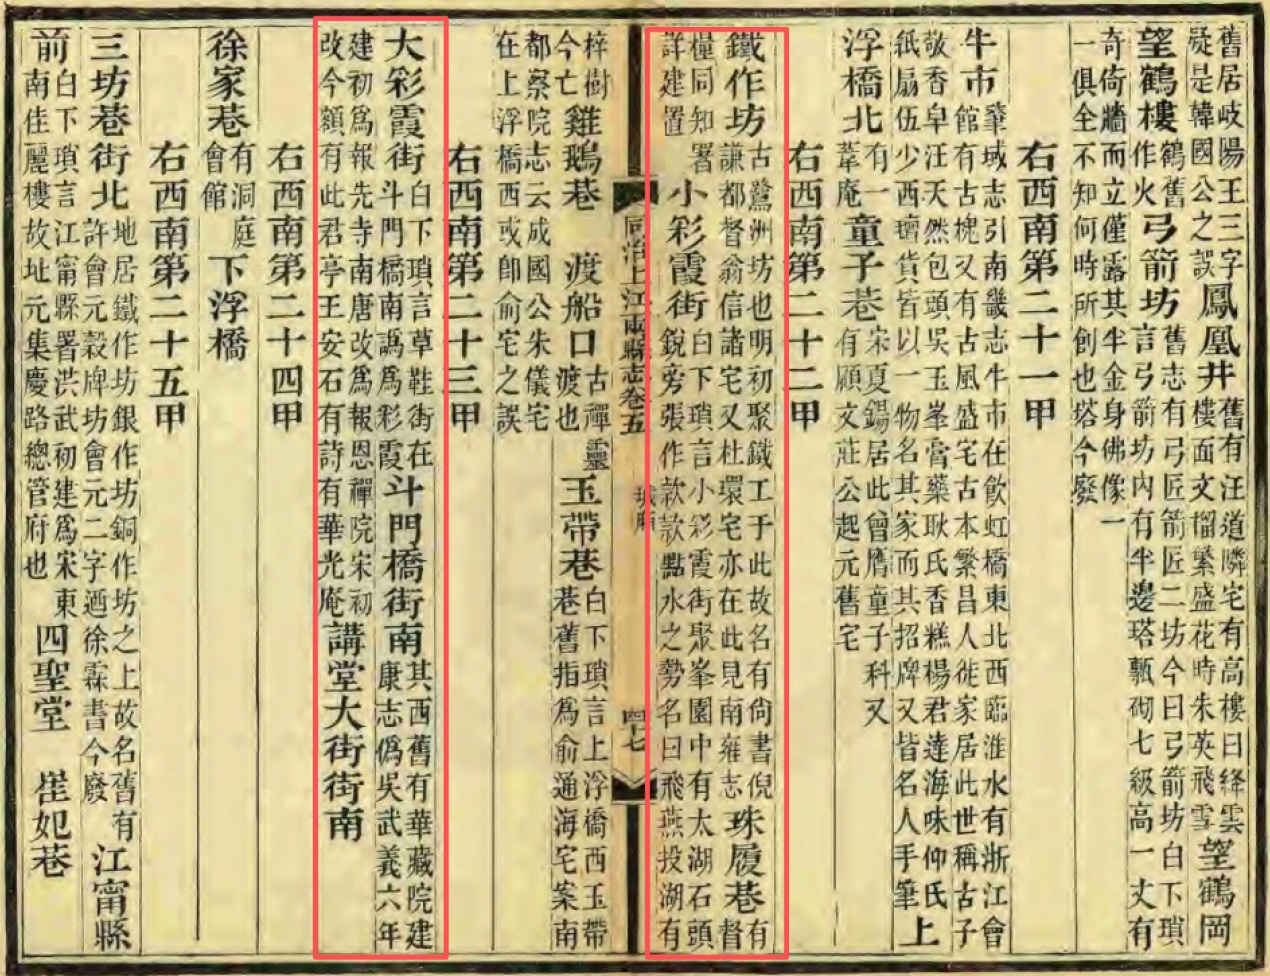 舊居岐陽王三字疑是韓國公之誤鳳凰井舊有汪道隣宅有高樓曰絳雲樓面文榴繁盛花時朱英飛雪望鶴岡
望鶴樓鶴舊作火弓箭坊舊志有弓匠箭匠二坊今曰弓箭坊白下瑣言弓箭坊內有半邊塔甎砌七級高一丈有
奇倚牆而立僅露其半金身佛像一一俱全不知何時所創也塔今廢
右西南第二十一甲
牛市肇域志引南畿志牛市在飲虹橋東北西臨淮水有浙江會館有古槐又有古風盛宅古本繁昌人徙家居此世稱古子
敬香皁汪天然包頭吳玉峯膏藥耿氏香糕楊君達海味仰氏紙扇伍少西貨皆以一物名其家而其招牌又皆名人手筆上
浮橋北有一葦庵童子巷宋夏錫居此曾膺童子科又有顧文莊公起元舊宅
右西南第二十二甲
鐵作坊古鷺洲坊也明初聚鐵工于此故名有尚書倪謙都督翁信諸宅又杜環宅亦在此見南雍志珠履巷有督
糧同知署詳建置小彩霞街白下瑣言小彩霞街聚峯園中有太湖石頭銳旁張作款款點水之勢名曰飛燕投湖有
同治上江兩縣志卷五 城廂 四十七
梓樹今亡雞鵝巷 渡船口古禪靈渡也玉帶巷白下瑣言上浮橋西玉帶巷舊指爲俞通海宅案南
都察院志云成國公朱儀宅在上浮橋西或卽俞宅之誤
右西南第二十三甲
大彩霞街白下瑣言草鞋街在斗門橋南譌爲彩霞斗門橋街南其西舊有華藏院建康志僞吳武義六年
建初爲報先寺南唐改爲報恩禪院宋初改今額有此君亭王安石有詩有華光庵講堂大街街南
右西南第二十四甲
徐家巷有洞庭會館下浮橋
右西南第二十五甲
三坊巷街北地居鐵作坊銀作坊銅作坊之上故名舊有許會元穀牌坊會元二字迺徐霖書今廢江甯縣
前白下瑣言江甯縣署洪武初建爲宋東南佳麗樓故址元集慶路總管府也四聖堂 崔妃巷